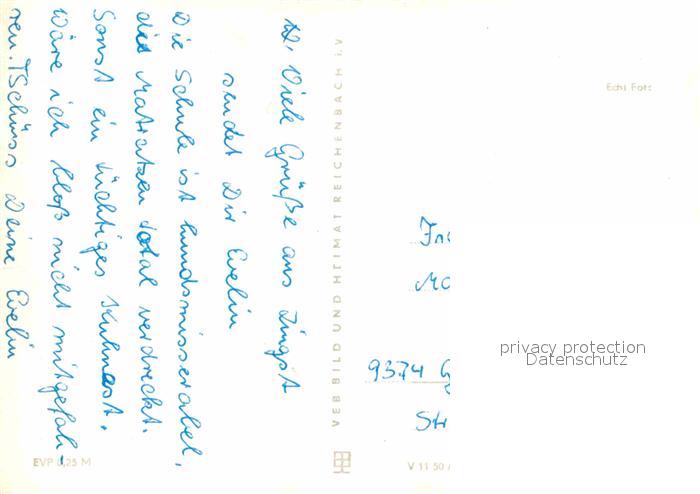 Viele Grüße aus Zingst
sendet Dir Evelin
Die Schule ist hundsmisserabel,
die Matratzen total verdreckt.
Sonst ein tüchtiges Kuhnest.
Wäre ich bloß nicht mitgefah-
ren. Tschüss Deine Evelin
VEB BILD UND HEIMAT REICHENBACH i.V
EVP 0,25 M
V 11 50
Echt Foto
9374
Str
privacy protection
Datenschutz